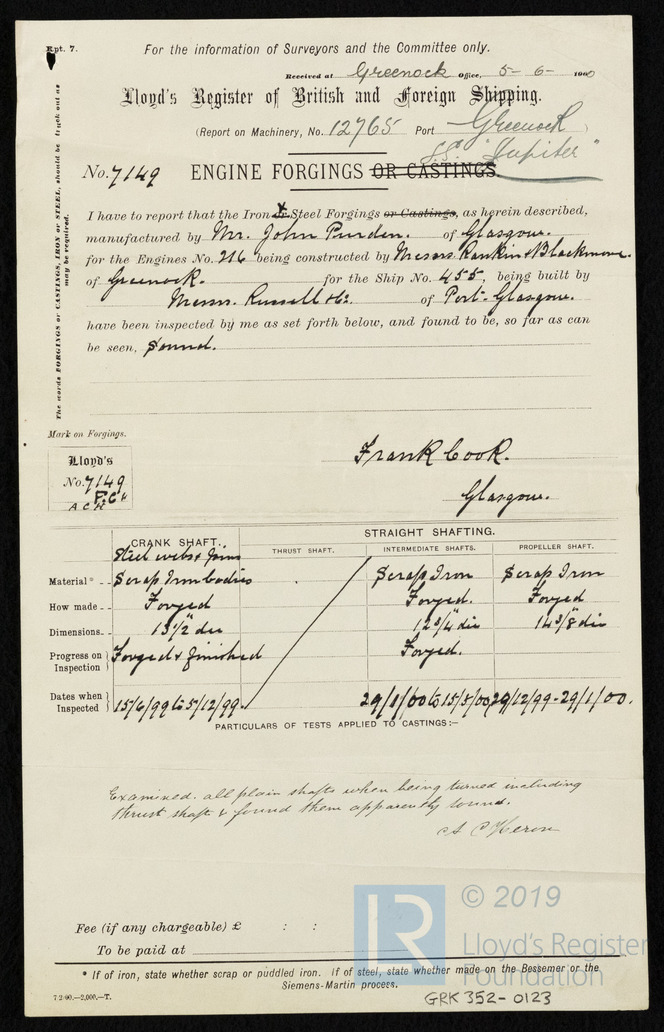 Rpt. 7.
For the information of Surveyors and the Committee only.
Received at Greenock Office, 5-6-1900
Lloyd's Register of British and Foreign Shipping.
(Report on Machinery, No. 12765 Port Greenock
S.S. "Jupiter"
No. 7149 ENGINE FORGINGS OR CASTINGS.
I have to report that the Iron & Steel Forgings or Castings, as herein described,
manufactured by Mr. John Purden. of Glasgow.
for the Engines No. 216 being constructed by Messrs Rankin & Blackmore.
of Greenock. for the Ship No. 455, being built by
Messrs. Russell & Co. of Port-Glasgow.
have been inspected by me as set forth below, and found to be, so far as can
be seen, Sound.
The words FORGINGS or CASTINGS, IRON or STEEL, should be struck out as
may be required.
Mark on Forgings.
Lloyd's
No. 7149
F.C.
A C H
Frank Cook.
Glasgow.
CRANK SHAFT. STRAIGHT SHAFTING.
THRUST SHAFT. INTERMEDIATE SHAFTS. PROPELLER SHAFT.
Steel webs & pins
Material* Scrap Iron bodies Scrap Iron Scrap Iron
How made Forged Forged. Forged
Dimensions. 13 1/2" dia 12 3/4" dia 14 3/8" dia
Progress on Inspection Forged & finished Forged.
Dates when Inspected 15/6/99 to 5/12/99 29/1/00 to 15/5/00 29/12/99 - 29/1/00.
PARTICULARS OF TESTS APPLIED TO CASTINGS:—
Examined. all plain shafts when being turned including
thrust shaft & found them apparently sound.
A C Heron
Fee (if any chargeable) £ : :
To be paid at
* If of iron, state whether scrap or puddled iron. If of steel, state whether made on the Bessemer or the
Siemens-Martin process.
7.2.00.—2,000.—T.
GRK 352-0123
LR
© 2019
Lloyd's Register
Foundation